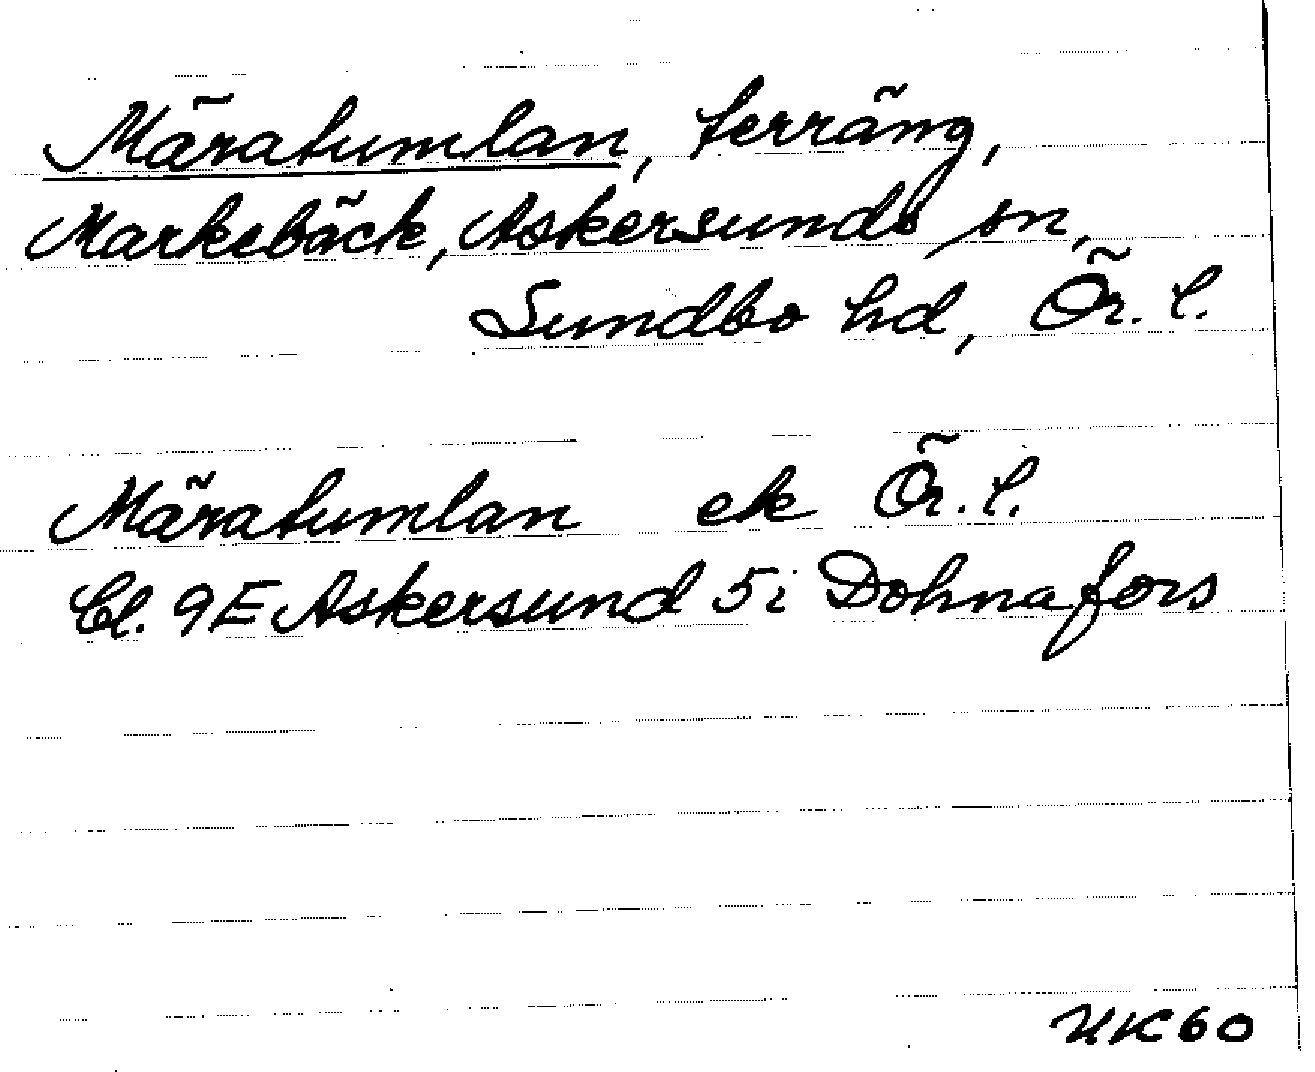 Märatumlan, terräng,
Markebäck, Askersunds sn,
Sundbo hd, Ör. l.
Märatumlan ek Ör. l.
Bl. 9E Askersund 5i Dohnafors
KK60